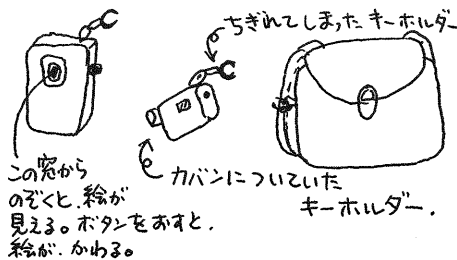 ちぎれてしまったキーホルダー
この窓から
のぞくと、絵が
見える。ボタンをおすと、
絵が、かわる。
カバンについていた
キーホルダー.